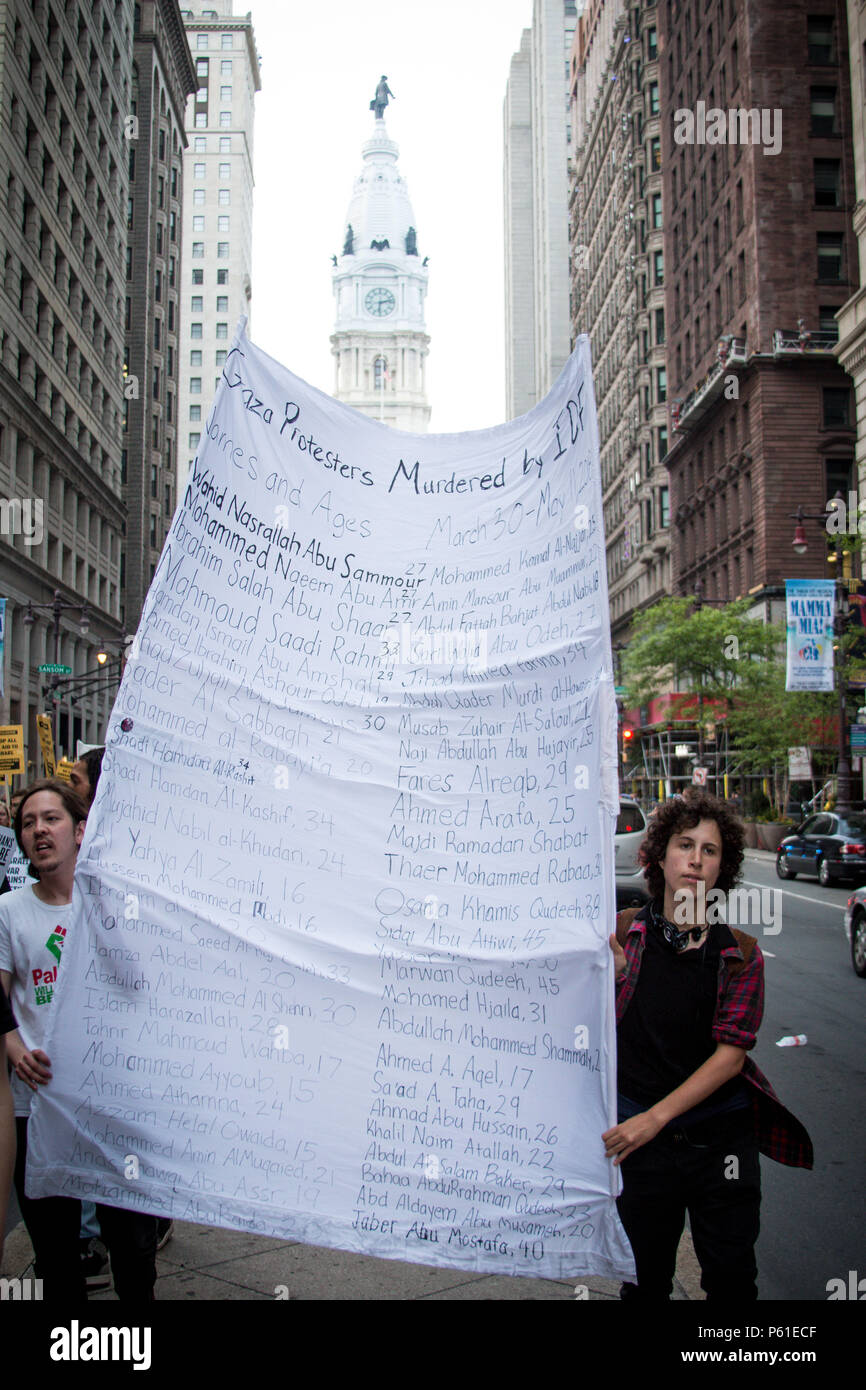 Gaza Protesters Murdered by IDF
Names and Ages March 30-May 1
Wahid Nasrallah Abu Sammour 27
Mohammed Naeem Abu Amr 27
Ibrahim Salah Abu Shaar
Mahmoud Saadi Rahmi 33
Hamdan Ismail Abu Amshah
Ahmed Ibrahim Ashour Odeh
Jihad Zuhair Abu Jamous 30
Bader Al Sabbagh 21
Mohammed al-Rabayi'a 20
Shadi Hamdan Al-Kashif 34
Shadi Hamdan Al-Kashif, 34
Mujahid Nabil al-Khudari, 24
Yahya Al Zamili 16
Hussein Mohammed Madi, 16
Ibrahim
Mohammed Saeed Al 33
Hamza Abdel Aal, 20
Abdullah Mohammed Al Shehri, 30
Islam Harazallah, 28
Mahmoud Wahba, 17
Mohammed Ayyoub, 15
Ahmed Athamna, 24
Azzam Helal Owaida, 15
Mohammed Amin AlMuqaied, 21
Anas Shawqi Abu Assr, 19
Mohammed Abu
Mohammed Kamal Al-Najjar, 25
Amin Mansour Abu Muammar, 22
Abdul Fattah Bahjat Abdul Nabi, 18
Sari Walid Abu Odeh, 27
Jihad Ahmed Farina, 34
Abdul Qader Murdi al-Hawajri
Musab Zuhair Al-Saloul, 22
Naji Abdullah Abu Hujayir, 25
Fares Alreqb, 29
Ahmed Arafa, 25
Majdi Ramadan Shabat
Thaer Mohammed Rabaa, 3
Osama Khamis Qudeeh, 38
Sidqi Abu Attiwi, 45
Yasser
Marwan Qudeeh, 45
Mohamed Hjaila, 31
Abdullah Mohammed Shammaly, 2
Ahmed A. Aqel, 17
Sa'ad A. Taha, 29
Ahmad Abu Hussain, 26
Khalil Naim Atallah, 22
Abdul Al Salam Baker, 29
Bahaa AbduRrahman Qudeeh, 23
Abd Aldayem Abu Musameh, 20
Jaber Abu Mostafa, 40
SANSOM
MAMMA
MIA!
alamy
Image ID: P61ECF
www.alamy.com